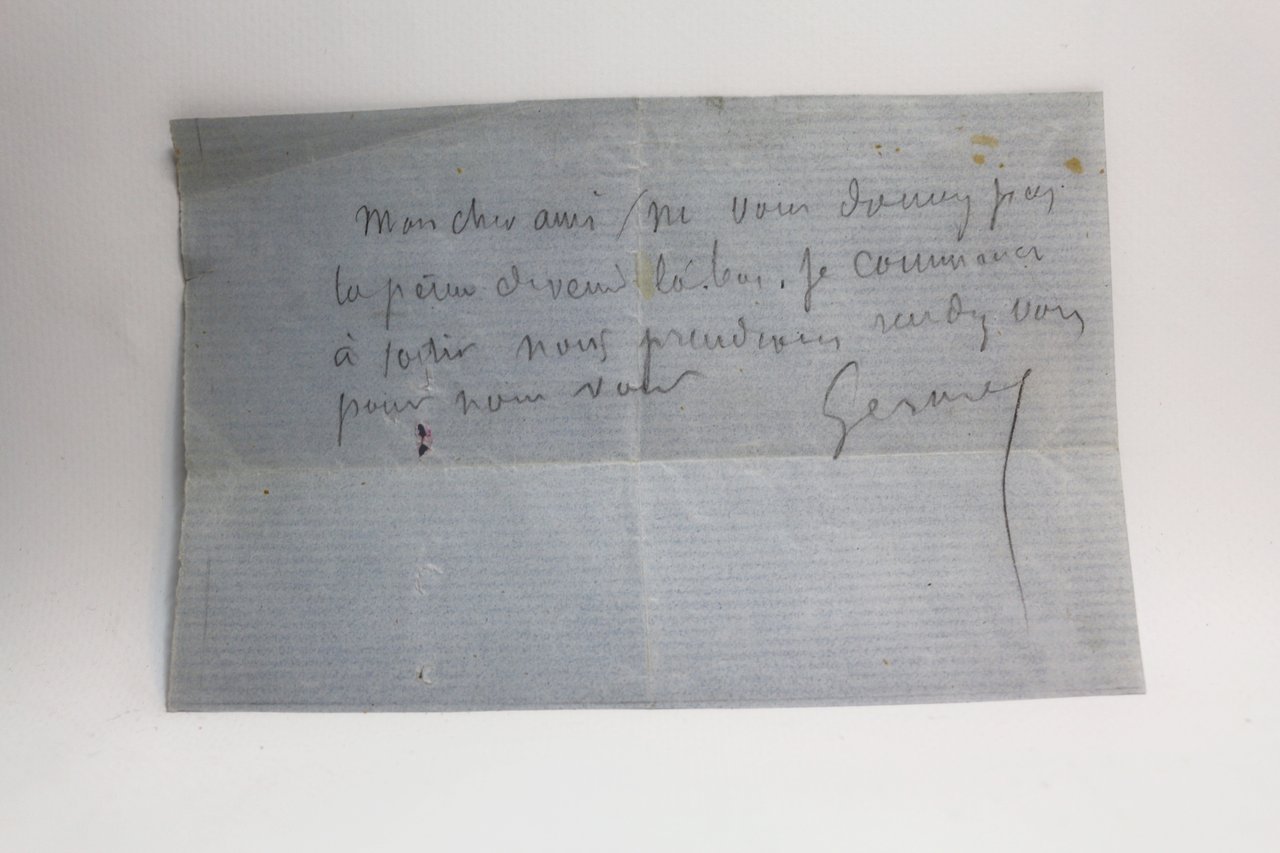 Mon cher ami, ne vous donnez pas
la peine de venir là-bas. Je commence
à sortir nous prendrons rendez vous
pour nous voir